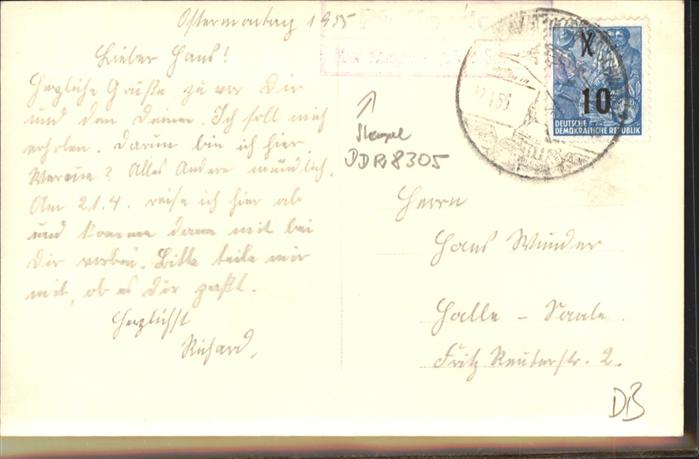 Ostermontag 1955
Lieber Hans!
Herzliche Grüße zu vor Dir
und den Deinen. Ich soll mich
erholen. Darum bin ich hier.
? Alles Andere mündlich.
Am 21.4. reise ich hier ab
und komme dann mit bei
Dir vorbei. Bitte teile mir
mit, ob es Dir paßt.
Herzlichst
Richard.
Stempel
DDR 8305
X
10
DEUTSCHE
DEMOKRATISCHE REPUBLIK
Herrn
Hans Wunder
Halle - Saale.
Fritz Reuterstr. 2.
DB